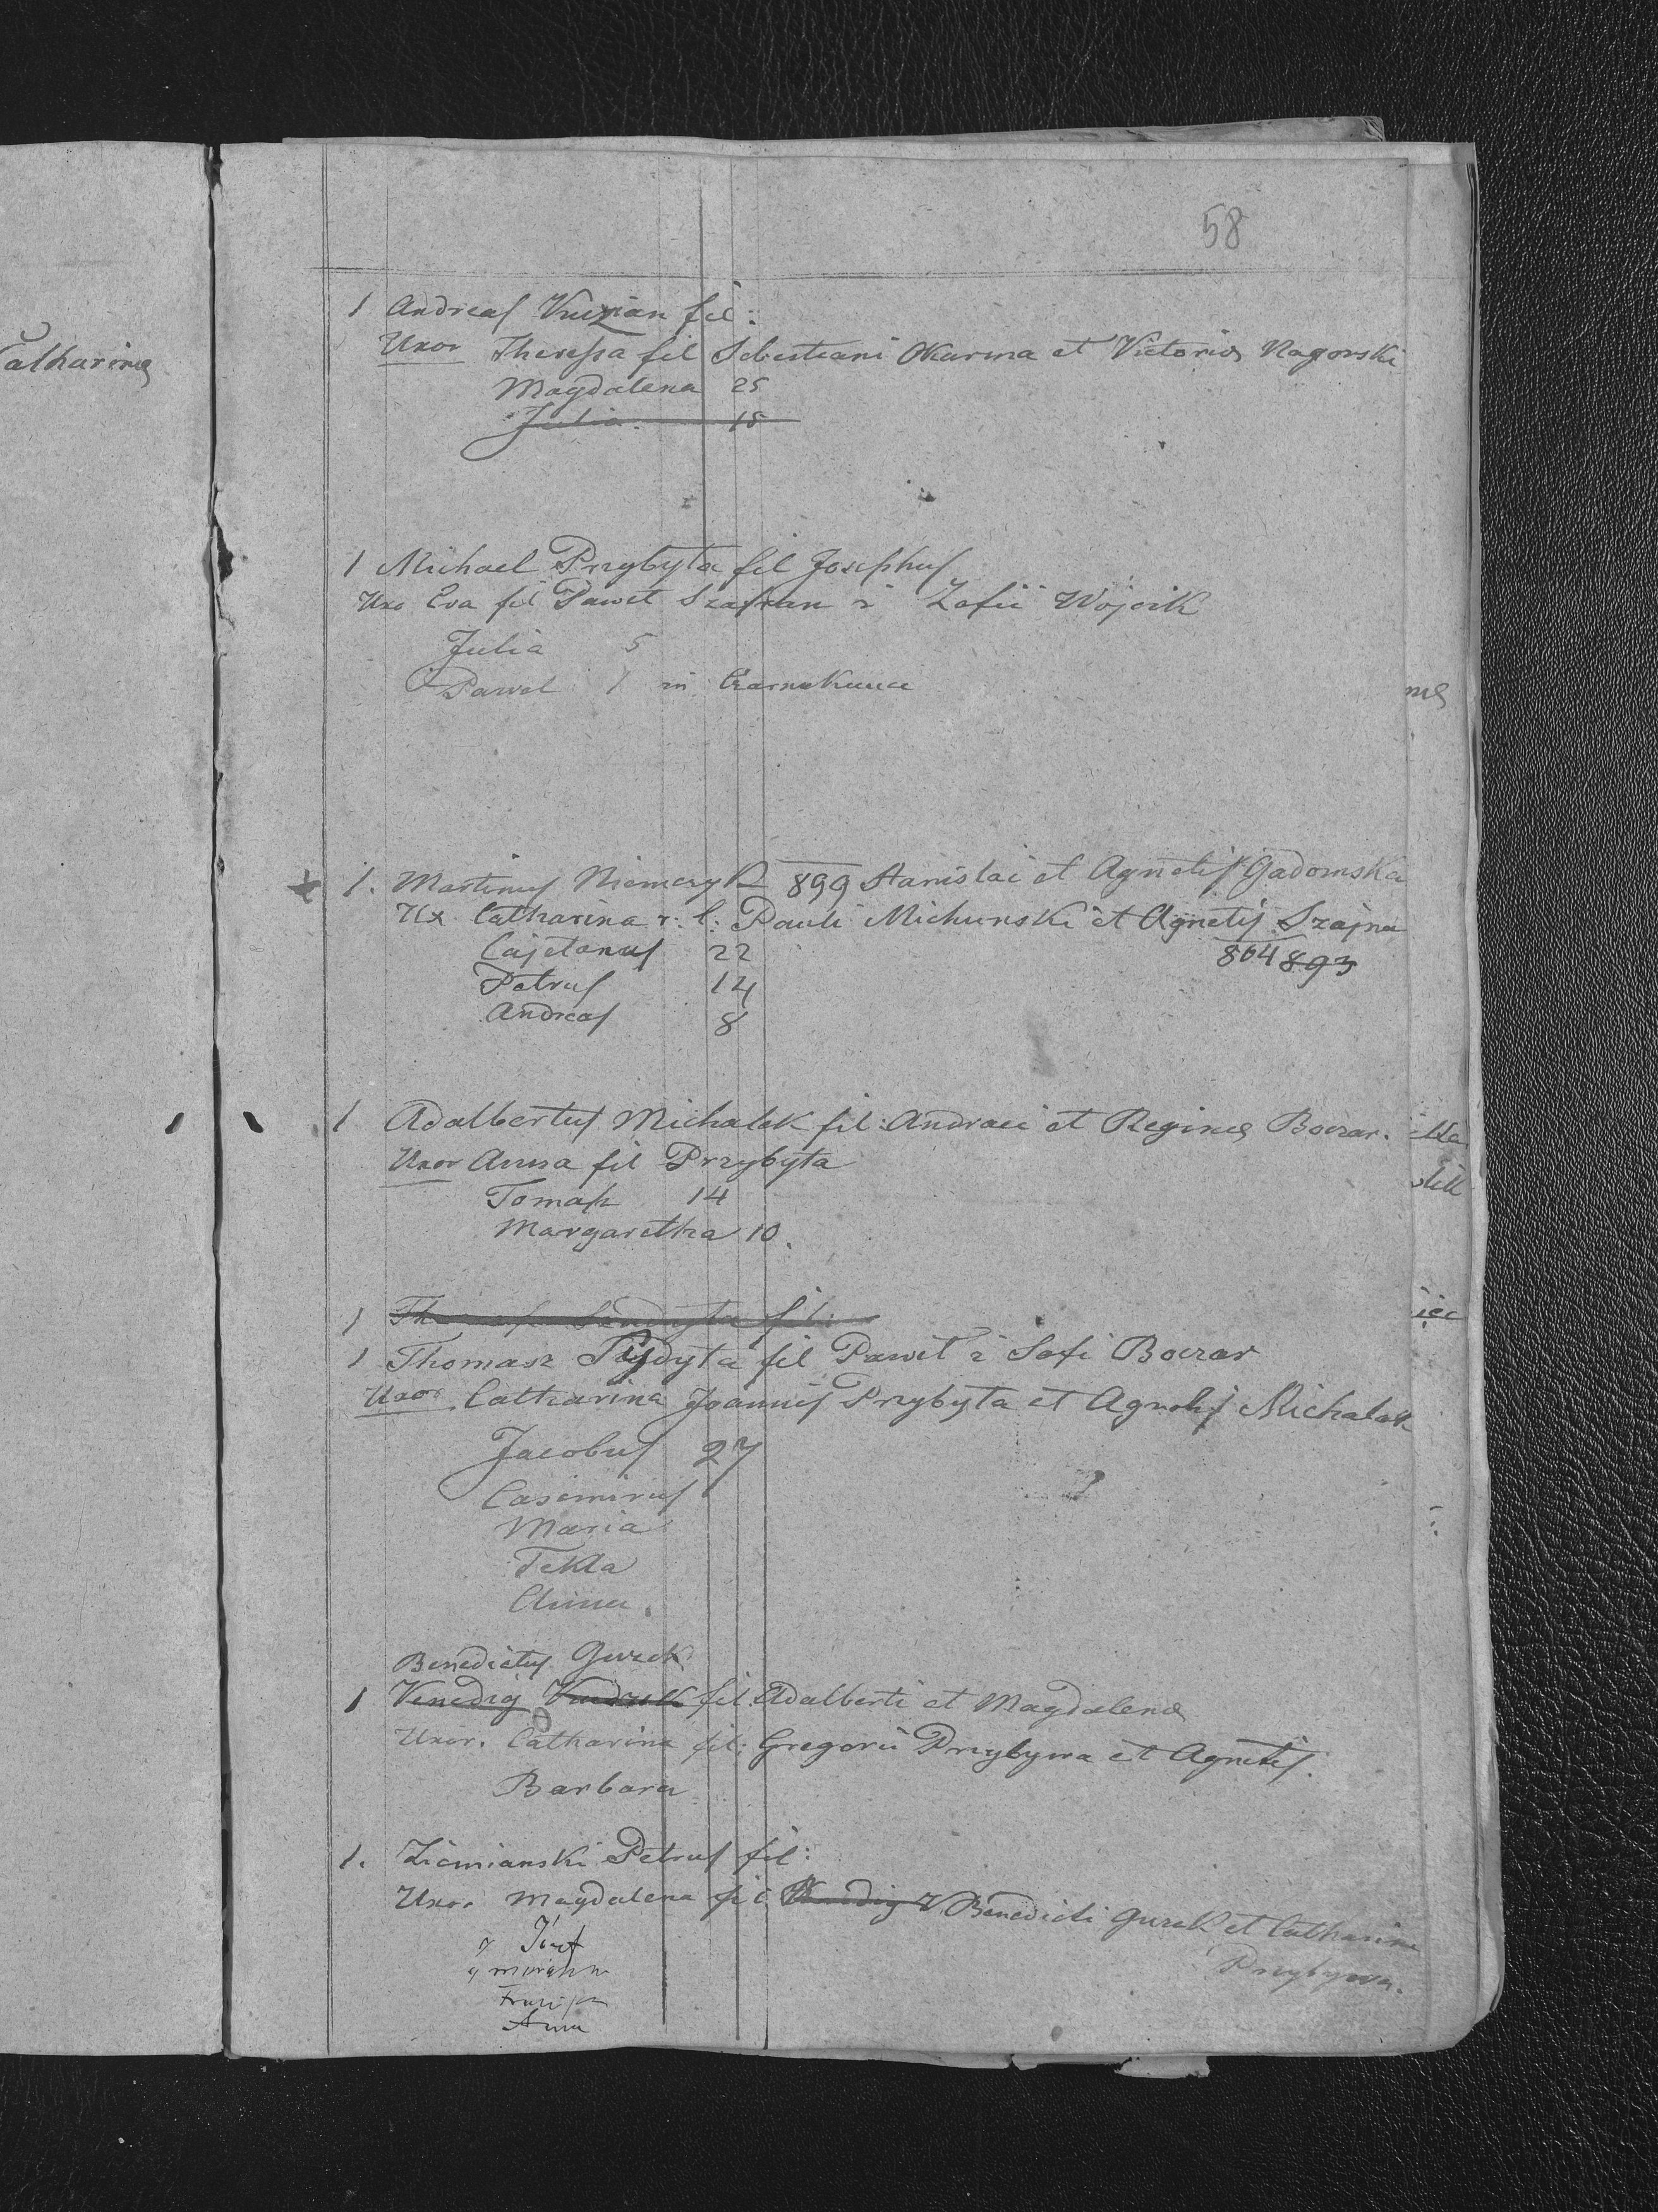 58
1 Andreas Kuzian fil:
Uxor Theressa fil Sebestiani Okurma et Victoriæ Nagorski
Magdalena 25
Julia. 18
1 Michael Przybyła fil Josephus
Uxo Eva fil Paweł Szafran i Zofii Wójcik
Julia 5
Paweł 1 in
1. Martinus Niemczyk 899 Stanislai et Agnetis Gadomska
Ux Catharina r: l: Pauli Michunski et Agnetis Szajna
864 893
Cajetanus 22
Petrus 14
Andreas 8
1 Adalbertus Michalak fil: Andreæ et Reginæ Boczar.
Uxor Anna fil Przybyła
Tomasz 14
Margaretha 10.
1
1 Thomasz fil Paweł i Sofi Boczar
Uxor Catharina Joannis Przybyła et Agnetis Michalak
Jacobus 27
Casimirus
Maria
Tekla
Anna.
Benedictus Gurek
1 Venedig fil: Adalberti et Magdalenæ
Uxor. Catharina fil: Gregorii Przybywa et Agnetis.
Barbara
1. Ziemianski Petrus fil:
Uxor. Magdalena fil Benedicti Gurek et Catharinæ
Przybywa.
Józef
Anna
Catharinæ